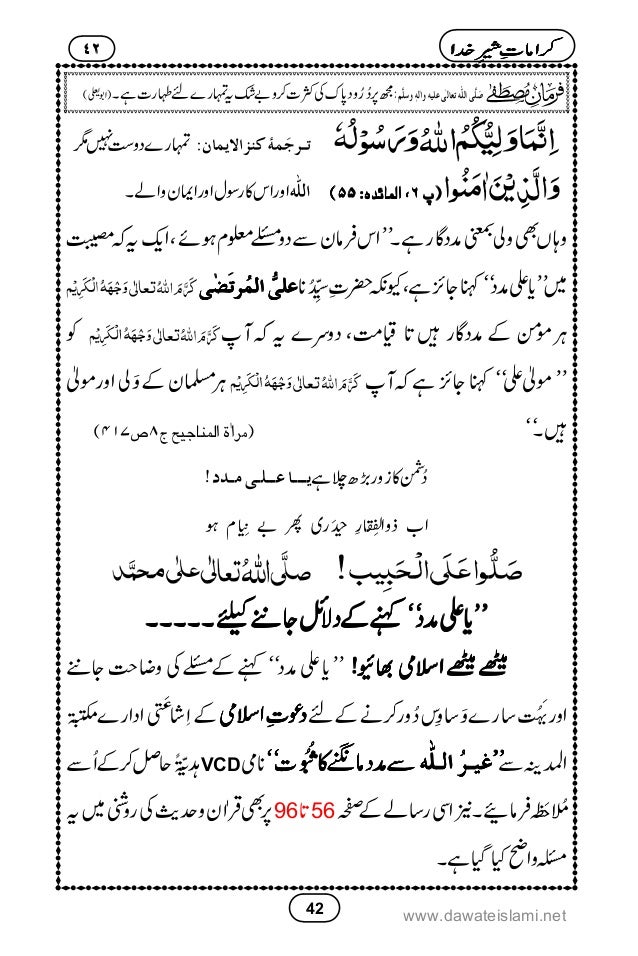 کراماتِ شیرِ خدا
٤٢
فرمانِ مصطفٰے صلَّی اللہ تعالٰی علیہ واٰلہٖ وسلَّم: مجھ پر دُرُود پاک کی کثرت کرو بے شک یہ تمہارے لئے طہارت ہے۔ (ابو یعلی)
اِنَّمَا وَلِیُّكُمُ اللّٰهُ وَ رَسُوْلُهٗ ترجَمۂ کنز الایمان: تمہارے دوست نہیں مگر
وَ الَّذِیْنَ اٰمَنُوا (پ ٦، المائدہ: ٥٥) اللہ اور اس کا رسول اور ایمان والے۔
وہاں بھی ولی بمعنی مددگار ہے۔‘‘ اس فرمان سے دو مسئلے معلوم ہوئے، ایک یہ کہ مصیبت
میں ’’یاعلی مدد‘‘ کہنا جائز ہے، کیونکہ حضرتِ سیِّدُنا علیُّ المُرتَضٰی كَرَّمَ اللهُ تعالٰى وَجْهَهُ الْكَرِيْم
ہر مومن کے مددگار ہیں تا قیامت، دوسرے یہ کہ آپ كَرَّمَ اللهُ تعالٰى وَجْهَهُ الْكَرِيْم کو
’’مولیٰ علی‘‘ کہنا جائز ہے کہ آپ كَرَّمَ اللهُ تعالٰى وَجْهَهُ الْكَرِيْم ہر مسلمان کے وَلی اور مولیٰ
ہیں۔‘‘ (مراٰۃ المناجیح ج٨ ص٤١٧)
دُشمن کا زور بڑھ چلا ہے یا علی مدد!
اب ذوالفِقارِ حیدَری پھر بے نِیام ہو
صَلُّوا عَلَی الْحَبِیب! صلَّی اللهُ تعالٰی علٰی محمَّد
’’یاعلی مدد‘‘ کہنے کے دلائل جاننے کیلئے۔۔۔۔۔
میٹھے میٹھے اسلامی بھائیو! ’’یاعلی مدد‘‘ کہنے کے مسئلے کی وضاحت جاننے
اور بَہُت سارے وَساوِس دُور کرنے کے لئے دعوتِ اسلامی کے اِشاعَتی ادارے مکتبۃ
المدینہ سے ’’غیرُ اللہ سے مدد مانگنے کا ثُبُوت‘‘ نامی VCD ہدِیَّۃً حاصل کر کے اُسے
مُلاحَظہ فرمائیے۔ نیز اسی رسالے کے صفحہ 56 تا 96 پر بھی قراٰن وحدیث کی روشنی میں یہ
مسئلہ واضح کیا گیا ہے۔
42
www.dawateislami.net